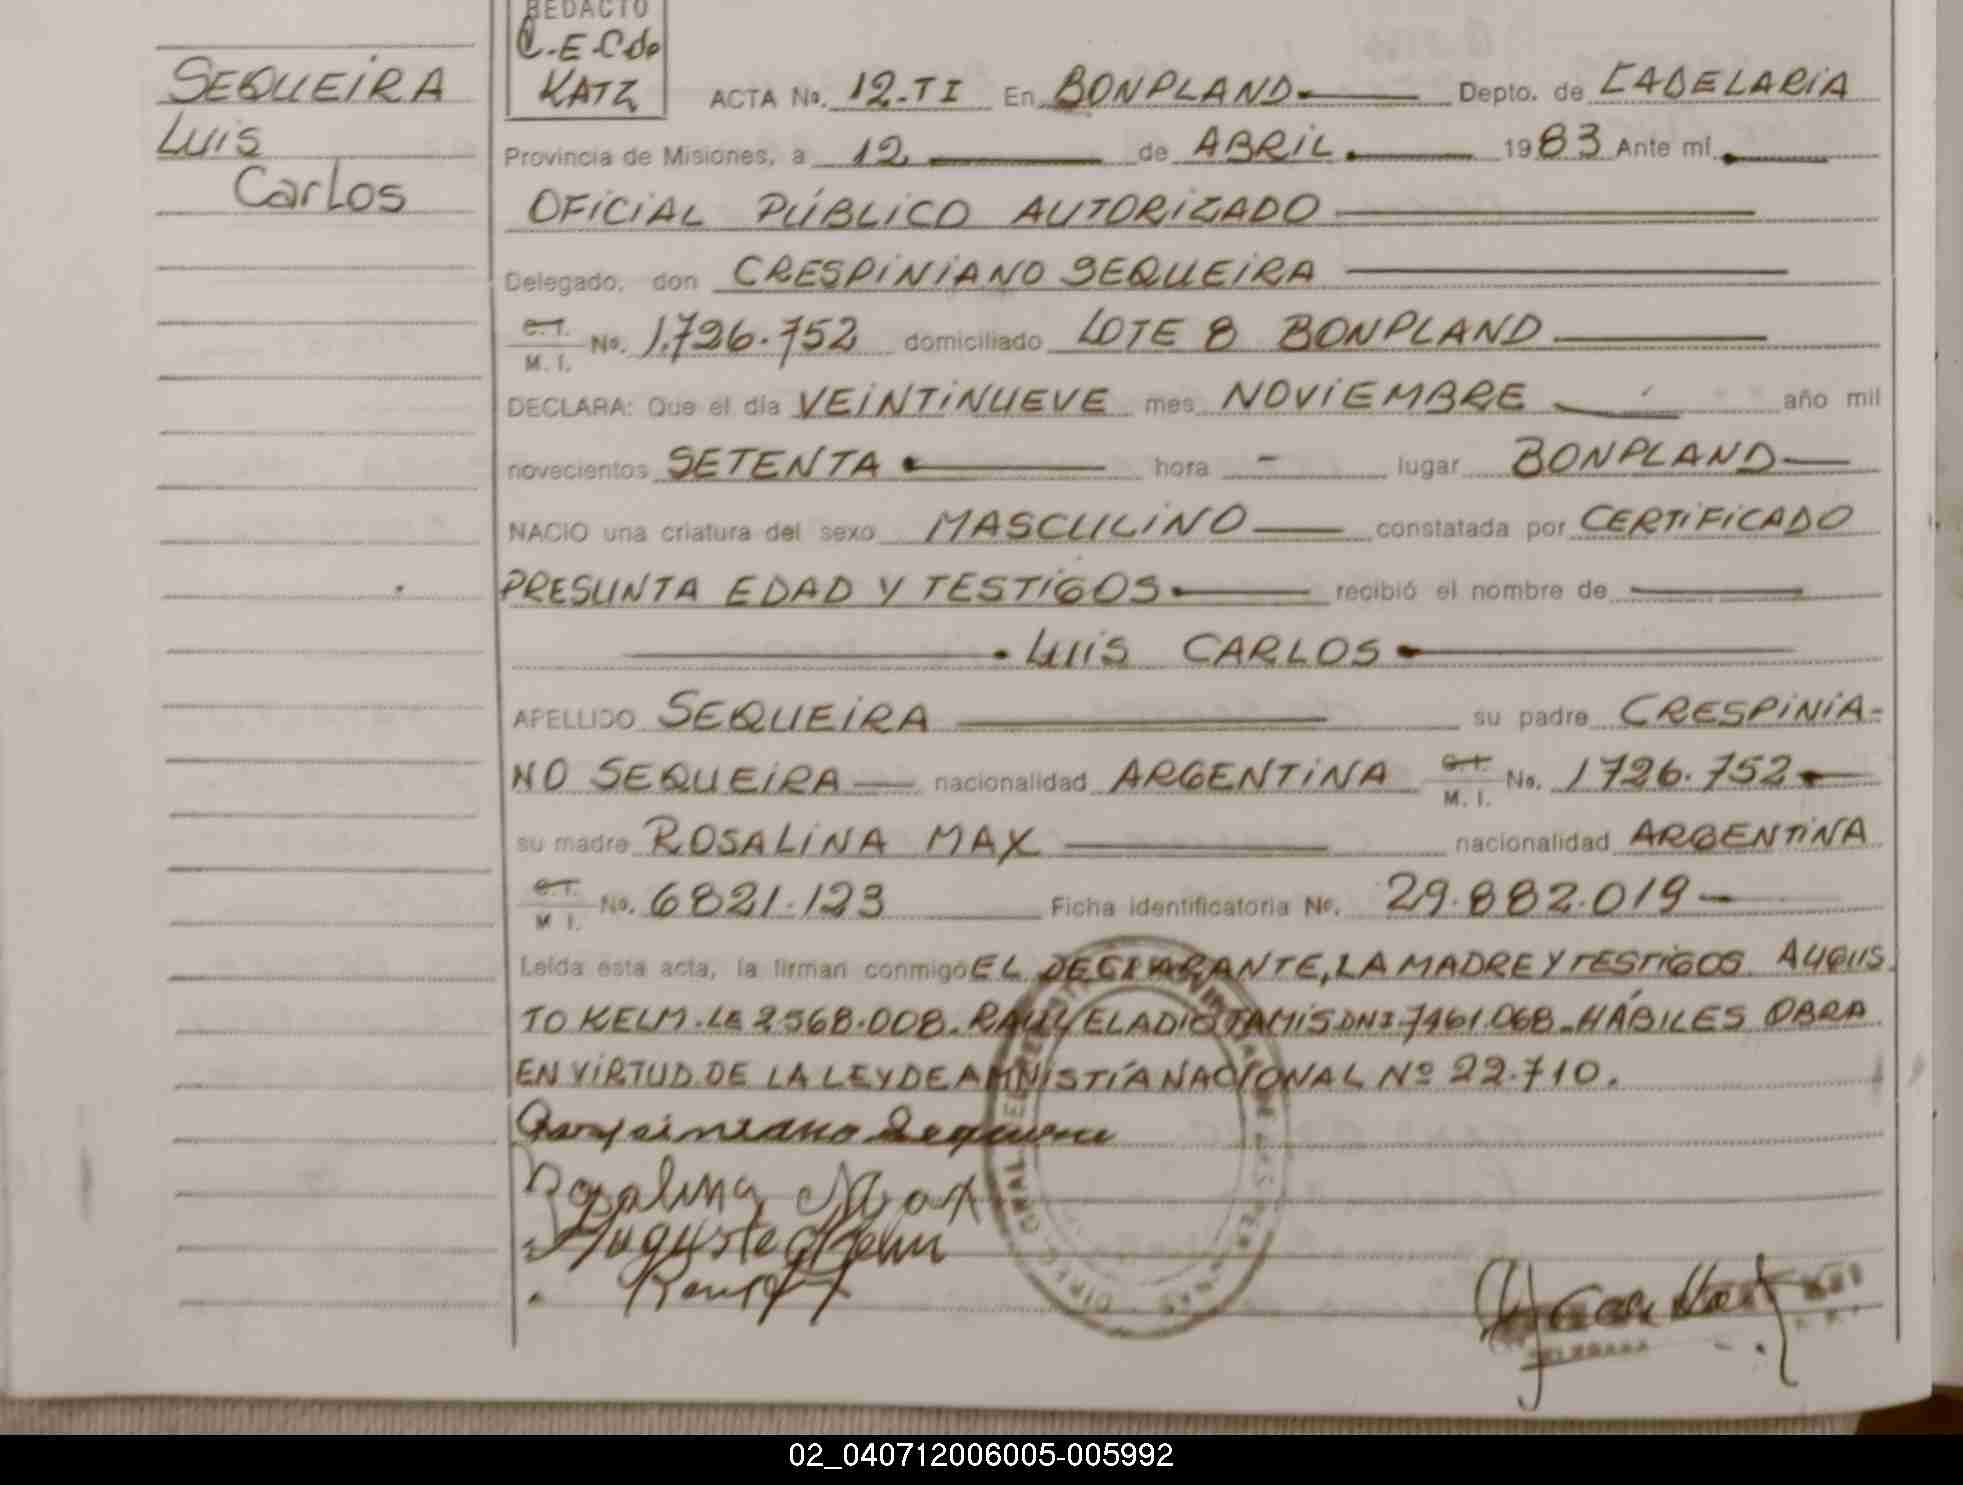 REDACTO
C.E.C de
KATZ
SEQUEIRA
Luis
Carlos
ACTA No. 12-TI En BONPLAND Depto. de CADELARIA
Provincia de Misiones, a 12 de ABRIL 1983 Ante mí
OFICIAL PÚBLICO AUTORIZADO
Delegado, don CRESPINIANO SEQUEIRA
C.I. M. I. No. 1.726.752 domiciliado LOTE 8 BONPLAND
DECLARA: Que el día VEINTINUEVE mes NOVIEMBRE año mil
novecientos SETENTA hora - lugar BONPLAND
NACIO una criatura del sexo MASCULINO constatada por CERTIFICADO
PRESUNTA EDAD Y TESTIGOS recibió el nombre de
LUIS CARLOS
APELLIDO SEQUEIRA su padre CRESPINIA-
NO SEQUEIRA nacionalidad ARGENTINA C.I. M. I. No. 1726.752
su madre ROSALINA MAX nacionalidad ARGENTINA
C.I. M I. No. 6821.123 Ficha identificatoria No. 29.882.019
Leída esta acta, la firman conmigo EL DECLARANTE, LA MADRE Y TESTIGOS AUGUS
TO KELM. LE 2568.008. RAUL ELADIO TAMIS DNI 7461.068. HÁBILES OBRA
EN VIRTUD DE LA LEY DE AMNISTÍA NACIONAL Nº 22.710.
Rosalina Max
Augusto Kelm
DELEGADA
02_040712006005-005992